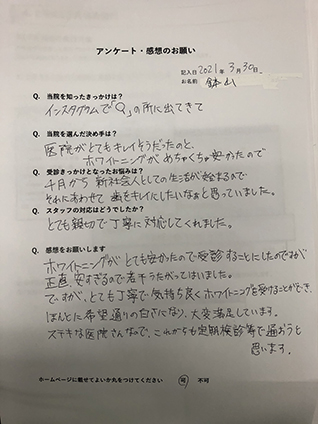 アンケート・感想のお願い
記入日 2021年 3月 30日
お名前 鉢山
Q. 当院を知ったきっかけは？
インスタグラムで「Q」の所に出てきて
Q. 当院を選んだ決め手は？
医院がとてもキレイそうだったのと、
ホワイトニングがめちゃくちゃ安かったので
Q. 受診きっかけとなったお悩みは？
4月から 新社会人としての生活が始まるので
それにあわせて 歯をキレイにしたいなぁと思っていました。
Q. スタッフの対応はどうでしたか？
とても親切で丁寧に対応してくれました。
Q. 感想をお願いします
ホワイトニングが とても安かったので受診することにしたのですが
正直、安すぎるので若干うたがってはいました。
ですが、とても丁寧で気持ち良くホワイトニングを受けることができ、
ほんとに希望通りの白さになり、大変満足しています。
ステキな医院さんなので、これからも定期検診等で通おうと
思います。
ホームページに載せてよいか丸をつけてください 可 不可